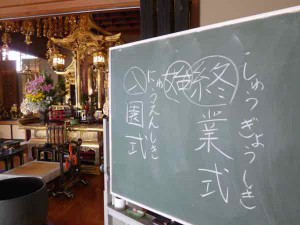 しゅうぎょうしき
終業式
にゅうえんしき
入園式